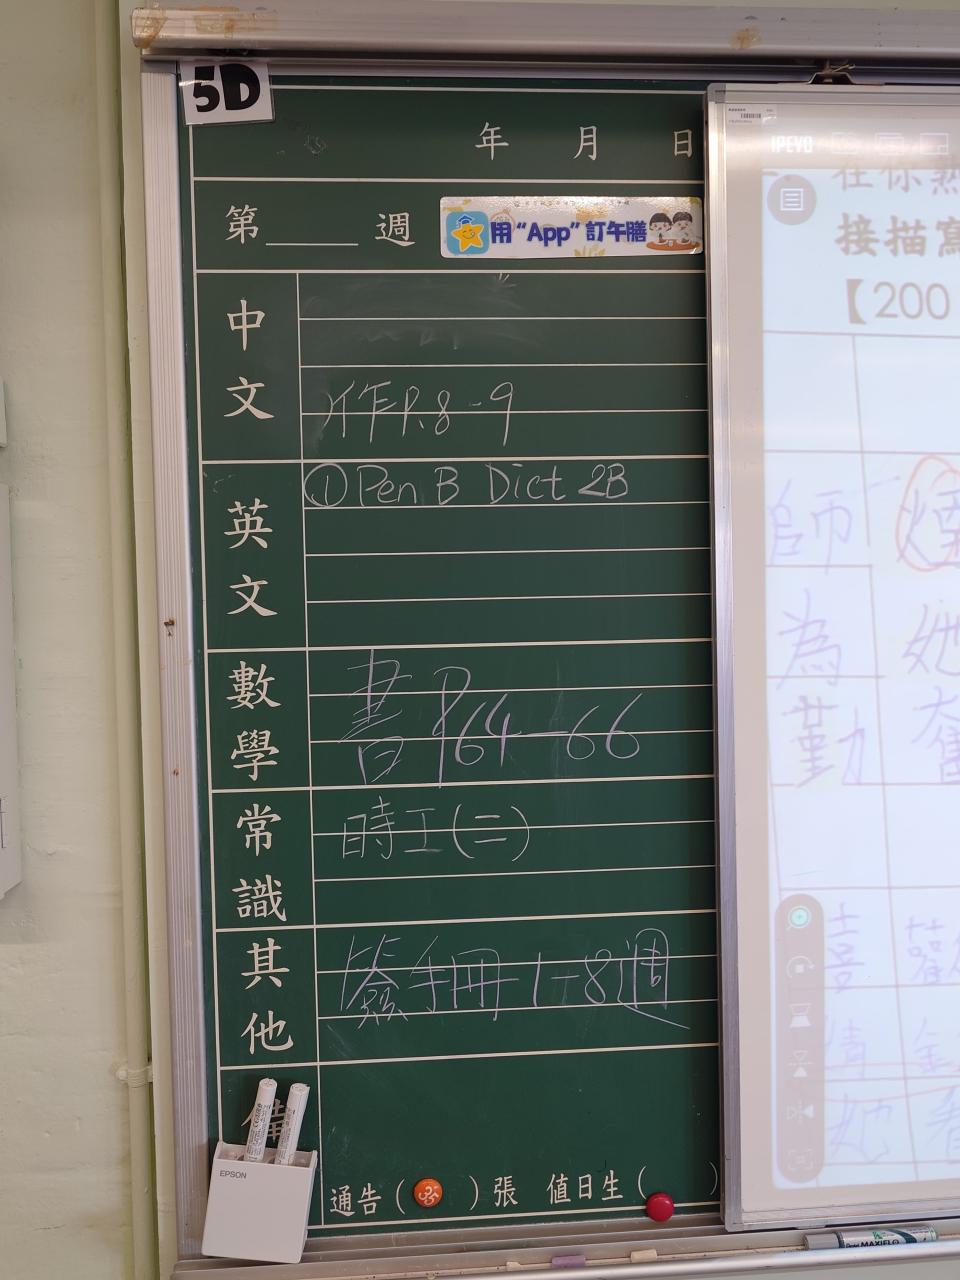 5D
年 月 日
第____週
用“App”訂午膳
中文
作P.8-9
英文
① Pen B Dict 2B
數學
書P64-66
常識
時工(二)
其他
簽手冊 1-8週
備
EPSON
通告( )張 值日生( )
IPEVO
在你熱
接描寫
【200
師
為 她
勤 奮
喜
情
她 看
Pentel MAXIFLO